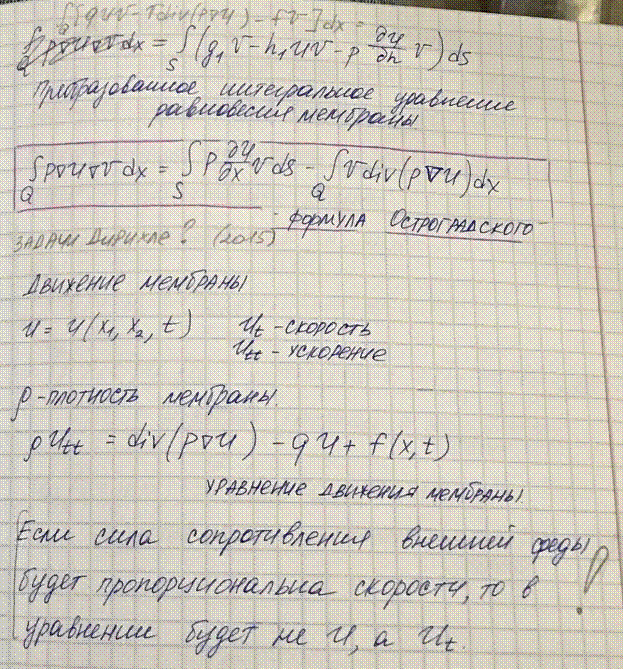 ∫[quv - v div(p∇u) - fv]dx =
∫ p∇u∇v dx = ∫(g₁v - h₁uv - p ∂u/∂n v)ds
Q S
Преобразованное интегральное уравнение
равновесия мембраны
∫p∇u∇v dx = ∫p ∂u/∂x v ds - ∫v div(p∇u)dx
Q S Q
формула Остроградского
задачи Дирихле? (2015)
Движение мембраны
u = u(x₁, x₂, t) uₜ - скорость
uₜₜ - ускорение
ρ - плотность мембраны.
ρuₜₜ = div(p∇u) - qu + f(x,t)
уравнение движения мембраны
Если сила сопротивления внешней среды
будет пропорциональна скорости, то в !
уравнении будет не u, а uₜ.